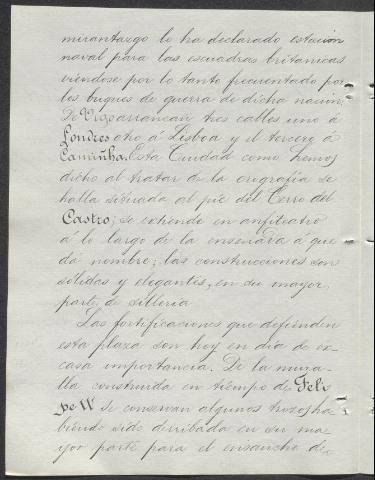 mirantazgo lo ha declarado estacion
naval para las escuadras britanicas
viendose por lo tanto frecuentado por
los buques de guerra de dicha nacion.
De Vigo arrancan tres cables uno á
Londres otro á Lisboa y el tercero á
Camiñha. Esta Ciudad como hemos
dicho al tratar de la orografía se
halla situada al pie del Cerro del
Castro; se extiende en anfiteatro
á lo largo de la ensenada á que
da nombre; las construcciones son
sólidas y elegantes, en su mayor
parte de silleria
Las fortificaciones que defienden
esta plaza son hoy en dia de es-
casa importancia. De la mura-
lla construida en tiempo de Feli
pe IV se conservan algunos trozos ha
biendo sido derribada en su ma
yor parte para el ensanche de